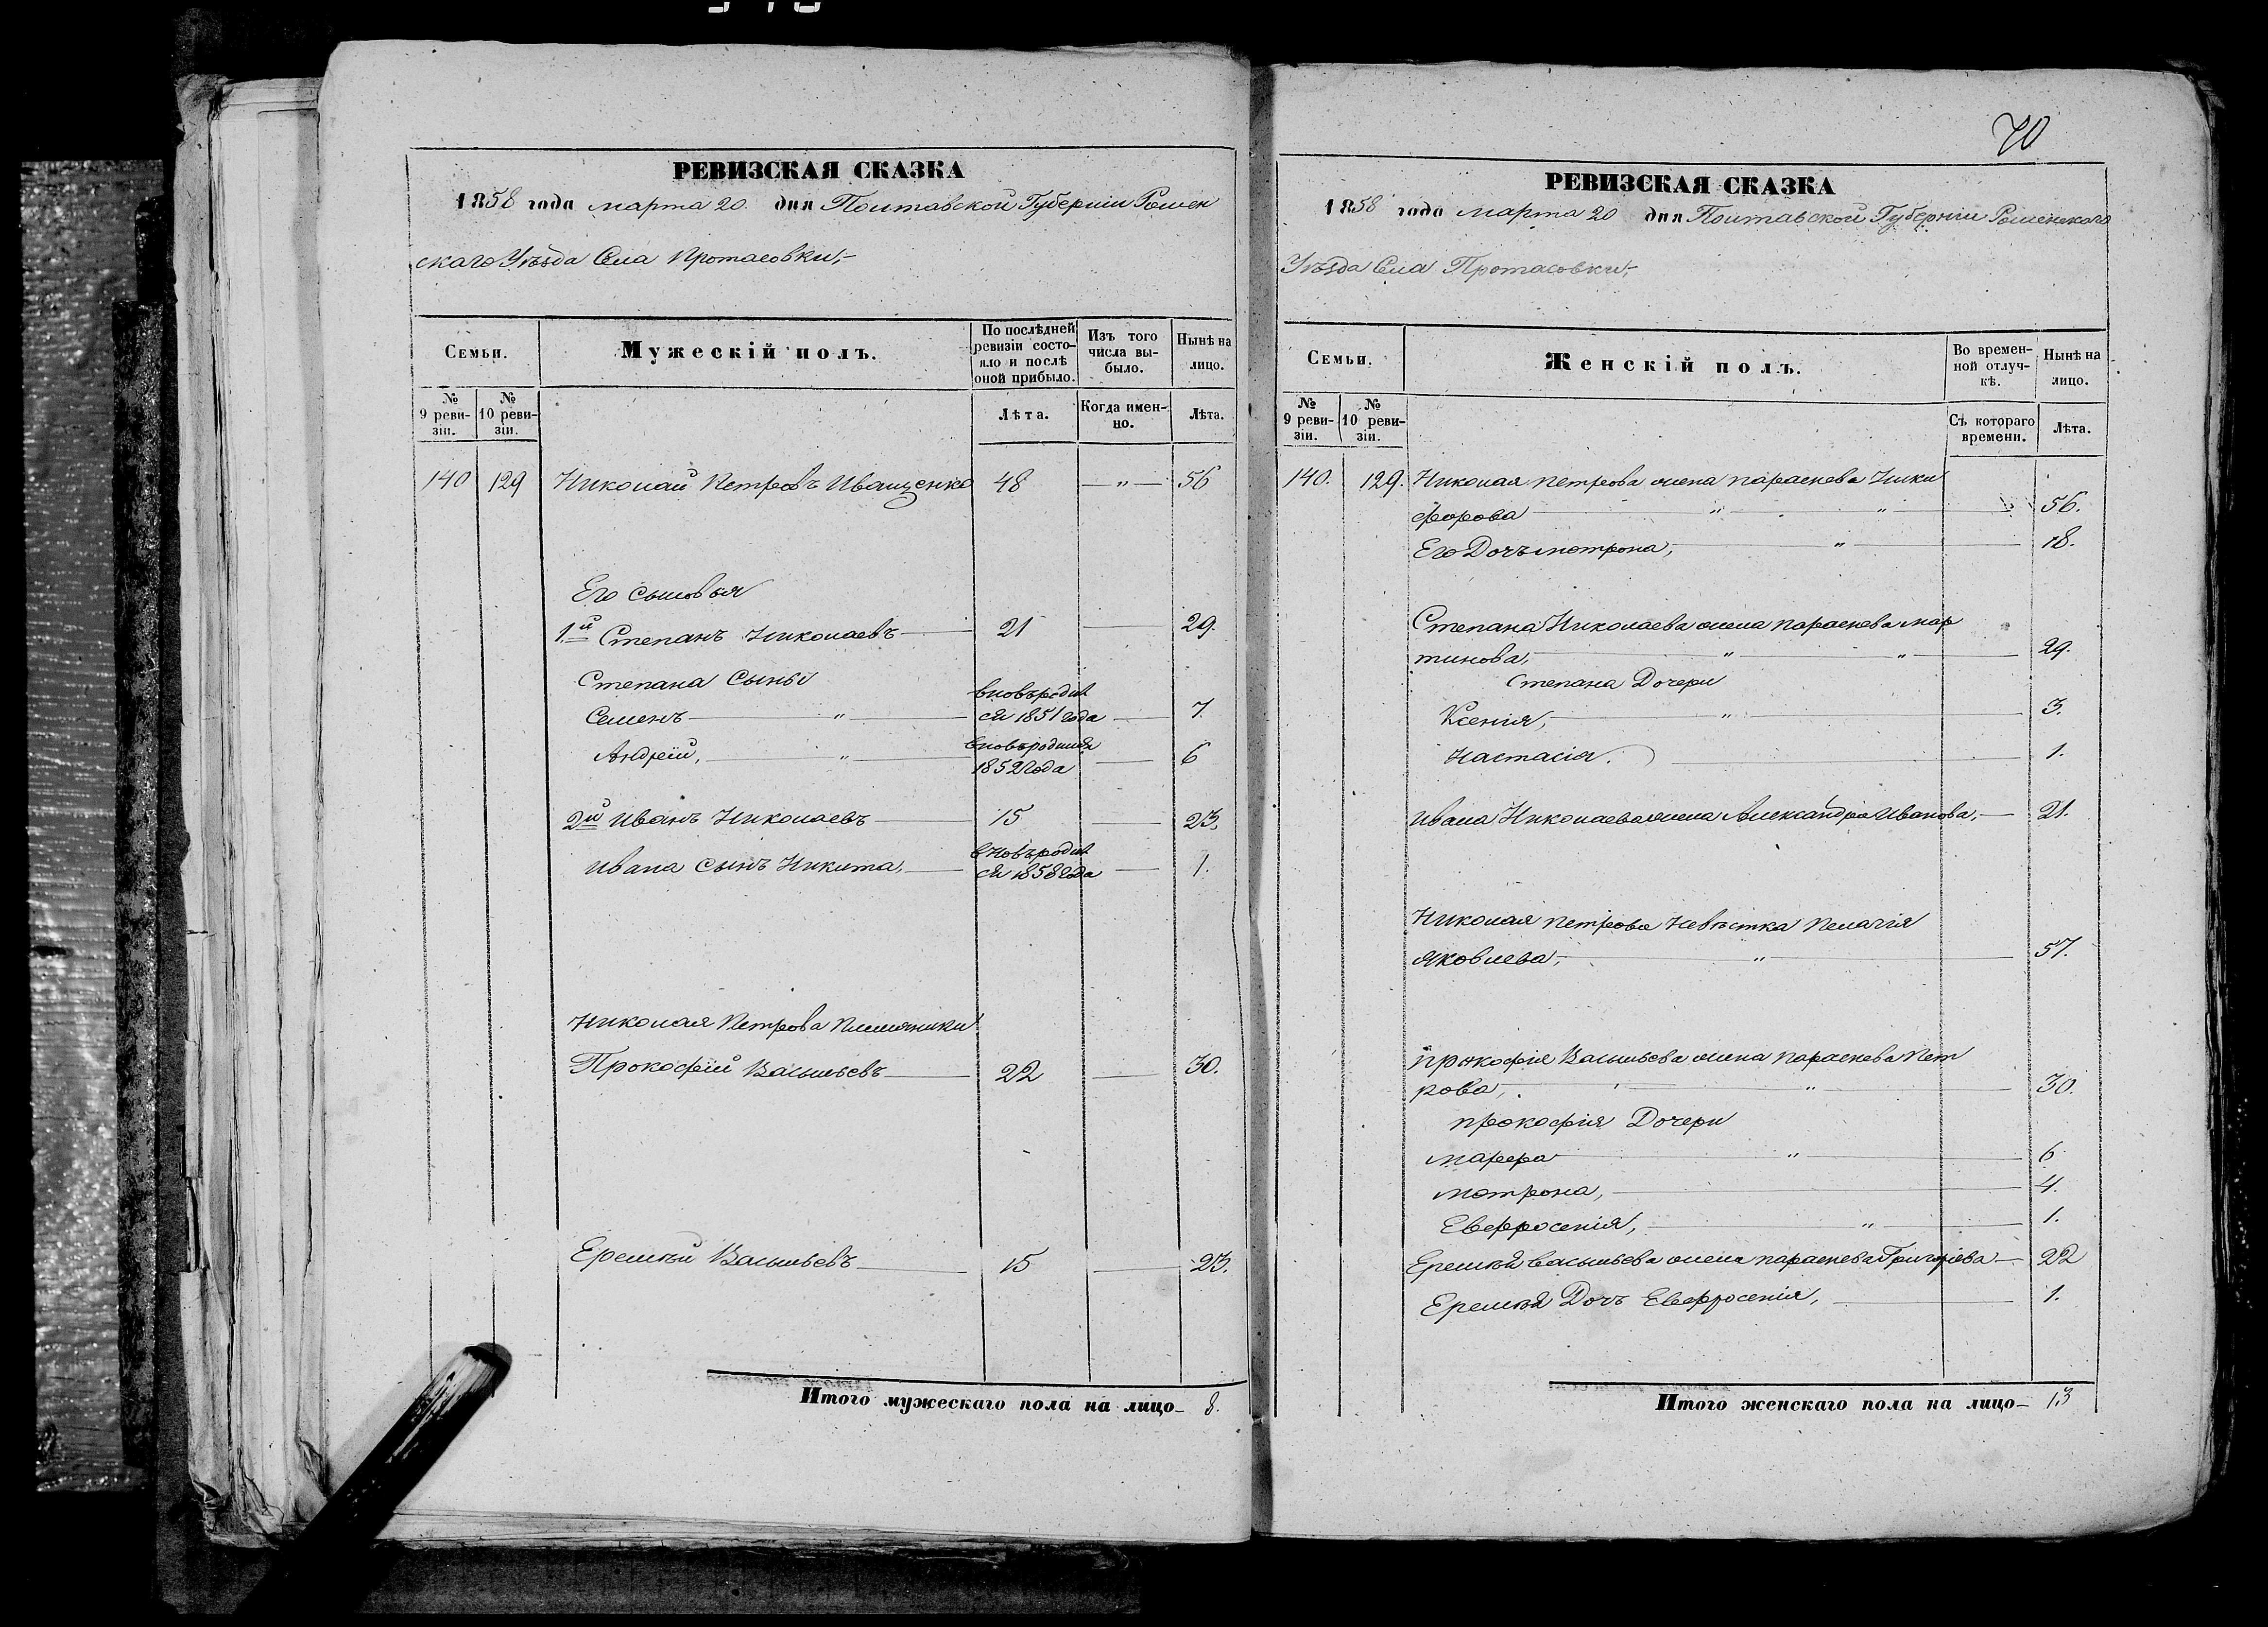 РЕВИЗСКАЯ СКАЗКА
1858 года марта 20. дня Полтавской Губерніи Ромен
скаго Уѣзда Села Протасовки,
Семьи.
Мужескій полъ.
По послѣдней ревизіи состояло и послѣ оной прибыло.
Изъ того числа выбыло.
Нынѣ на лицо.
№ 9 ревизіи.
№ 10 ревизіи.
Лѣта.
Когда именно.
Лѣта.
140 129 Николай Петровъ Иващенко 48 — „ — 56
Его сыновья
1й Степанъ Николаевъ 21 29.
Степана Сыны
Семенъ „ вновьродил
ся 1851 года 7.
Андрей, „ вновьродился
1852 года 6
2й Иванъ Николаевъ 15 23.
Ивана сынъ Никита, вновьродил
ся 1858 года 1.
Николая Петрова племяники
Прокофій Васильевъ 22 30.
Еремѣй Васильевъ 15 23.
Итого мужескаго пола на лицо 8.
70
РЕВИЗСКАЯ СКАЗКА
1858 года марта 20 дня Полтавской Губерніи Роменскаго
Уѣзда Села Протасовки,
Семьи.
Женскій полъ.
Во временной отлучкѣ.
Нынѣ на лицо.
№ 9 ревизіи.
№ 10 ревизіи.
Съ котораго времени.
Лѣта.
140. 129. Николая петрова жена параскева Ники
форова „ „ 56.
Его Дочь мотрона, „ 18.
Степана Николаева жена параскева мар
тинова, „ „ 29.
Степана Дочери
Ксенія, „ 3.
Настасія. 1.
Ивана Николаева жена Александра Иванова, 21.
Николая петрова невѣстка Пелагія
яковлева, „ 57.
прокофія Васильева жена параскева Пет
рова, „ 30.
прокофія Дочери
марфа „ 6
мотрона, 4.
Евфросенія, „ 1.
Еремѣя васильева жена параскева Григорiева 22
Еремѣя Дочь Евфросенія, 1.
Итого женскаго пола на лицо 13